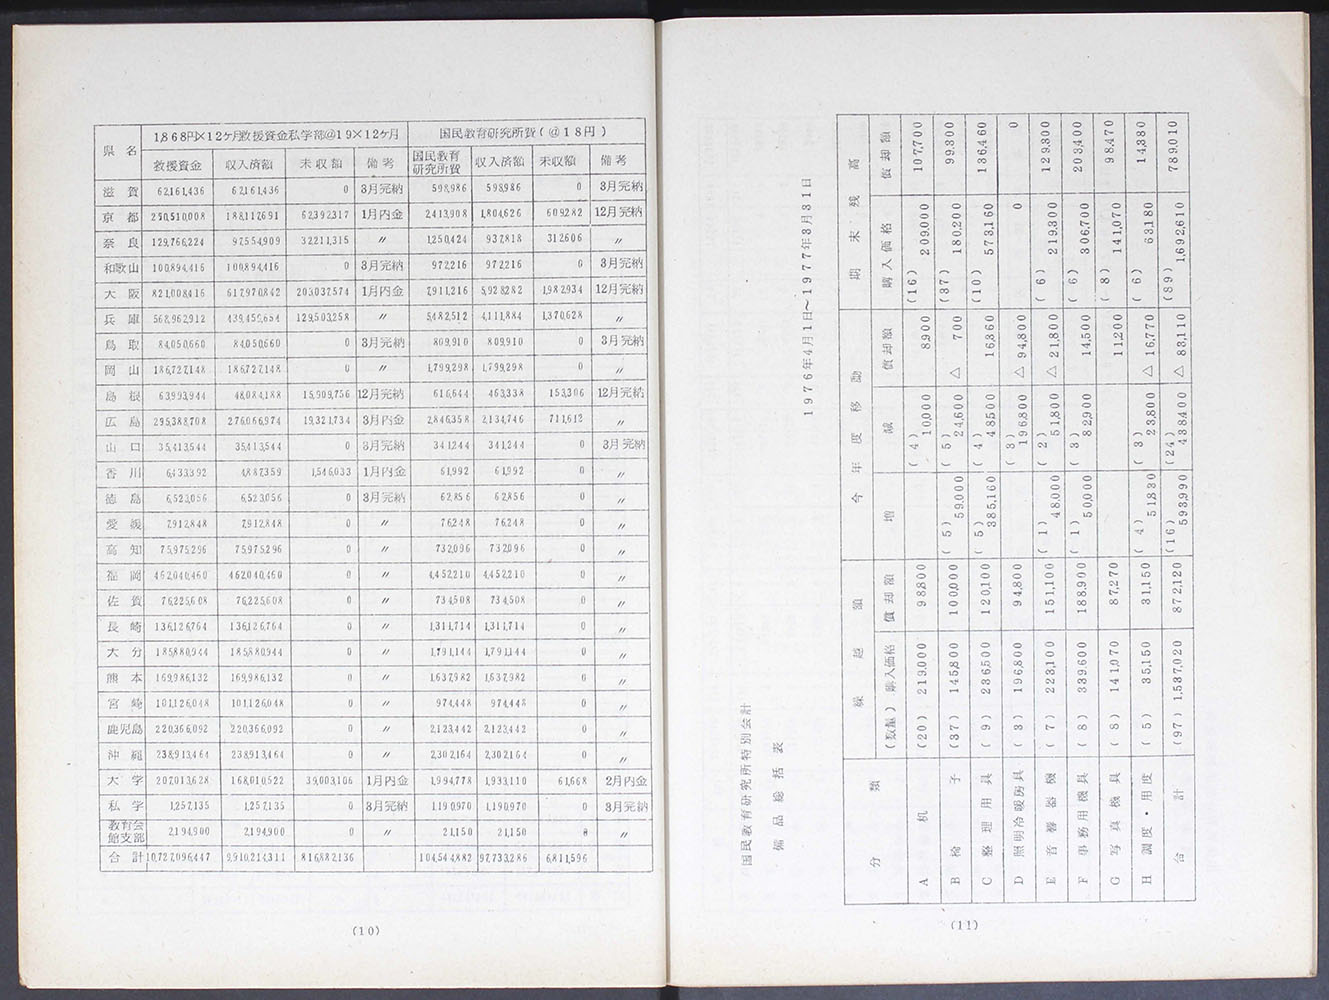 県名 1,868円×12ケ月救援資金私学部@19×12ケ月 国民教育研究所費(@18円)
救援資金 収入済額 未収額 備考 国民教育研究所費 収入済額 未収額 備考
滋賀 62,161,436 62,161,436 0 3月完納 598,986 598,986 0 3月完納
京都 250,510,008 188,117,691 62,392,317 1月内金 2,413,908 1,804,626 609,282 12月完納
奈良 129,766,224 97,554,909 32,211,315 〃 1,250,424 937,818 312,606 〃
和歌山 100,894,416 100,894,416 0 3月完納 972,216 972,216 0 3月完納
大阪 821,008,416 617,970,842 203,037,574 1月内金 7,911,216 5,928,282 1,982,934 12月完納
兵庫 568,962,912 439,459,654 129,503,258 〃 5,482,512 4,111,884 1,370,628 〃
鳥取 84,050,660 84,050,660 0 3月完納 809,910 809,910 0 3月完納
岡山 186,727,148 186,727,148 0 〃 1,799,298 1,799,298 0 〃
島根 63,993,944 48,084,188 15,909,756 12月完納 616,644 463,338 153,306 12月完納
広島 295,388,708 276,066,974 19,321,734 3月内金 2,846,358 2,134,746 711,612 〃
山口 35,413,544 35,413,544 0 3月完納 341,244 341,244 0 3月完納
香川 6,433,392 4,887,359 1,546,033 1月内金 61,992 61,992 0 〃
徳島 6,523,056 6,523,056 0 3月完納 62,856 62,856 0 〃
愛媛 7,912,848 7,912,848 0 〃 76,248 76,248 0 〃
高知 75,975,296 75,975,296 0 〃 732,096 732,096 0 〃
福岡 462,040,460 462,040,460 0 〃 4,452,210 4,452,210 0 〃
佐賀 76,225,608 76,225,608 0 〃 734,508 734,508 0 〃
長崎 136,126,764 136,126,764 0 〃 1,311,714 1,311,714 0 〃
大分 185,880,944 185,880,944 0 〃 1,791,144 1,791,144 0 〃
熊本 169,986,132 169,986,132 0 〃 1,637,982 1,637,982 0 〃
宮崎 101,126,048 101,126,048 0 〃 974,448 974,448 0 〃
鹿児島 220,366,092 220,366,092 0 〃 2,123,442 2,123,442 0 〃
沖縄 238,913,464 238,913,464 0 〃 2,302,164 2,302,164 0 〃
大学 207,013,628 168,010,522 39,003,106 1月内金 1,994,778 1,933,110 61,668 2月内金
私学 1,257,135 1,257,135 0 3月完納 1,190,970 1,190,970 0 3月完納
教育会館支部 2,194,900 2,194,900 0 〃 21,150 21,150 0 〃
合計 10,727,096,447 9,910,214,311 816,882,136 104,544,882 97,733,286 6,811,596
(10)
国民教育研究所特別会計
備品総括表
1976年4月1日~1977年3月31日
分類 繰越額 今年度移動 期末残高
(数量) 購入価格 償却額 増 減 償却額 購入価格 償却額
A 机 (20) 219,000 98,800 (4) 10,000 8,900 (16) 209,000 107,700
B 椅子 (37) 145,800 100,000 (5) 59,000 (5) 24,600 △ 700 (37) 180,200 99,300
C 整理用具 (9) 236,500 120,100 (5) 385,160 (4) 48,500 16,360 (10) 573,160 136,460
D 照明冷暖房具 (3) 196,800 94,800 (3) 196,800 △ 94,800 0 0
E 音響器機 (7) 223,100 151,100 (1) 48,000 (2) 51,800 △ 21,800 (6) 219,300 129,300
F 事務用機具 (8) 339,600 188,900 (1) 50,000 (3) 82,900 14,500 (6) 306,700 203,400
G 写真機具 (8) 141,070 87,270 11,200 (8) 141,070 98,470
H 調度・用度 (5) 35,150 31,150 (4) 51,830 (3) 23,800 △ 16,770 (6) 63,180 14,380
合計 (97) 1,537,020 872,120 (16) 593,990 (24) 438,400 △ 83,110 (89) 1,692,610 789,010
(11)